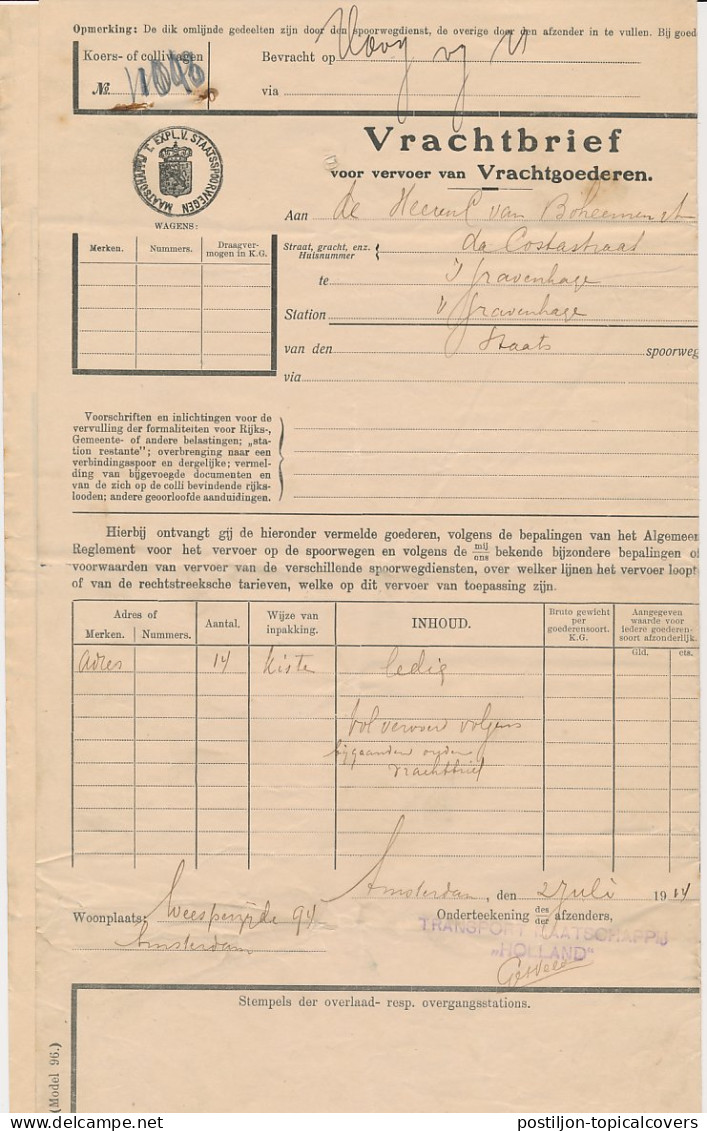 Opmerking: De dik omlijnde gedeelten zijn door den spoorwegdienst, de overige door den afzender in te vullen. Bij goed
Koers- of colliwagen
No.
Bevracht op
via
MAATSCHAPPIJ T. EXPL. V. STAATSSPOORWEGEN
Vrachtbrief
voor vervoer van Vrachtgoederen.
Aan de Heeren C van Boheemen
WAGENS:
Merken. Nummers. Draagver-
mogen in K.G.
Straat, gracht, enz.
Huisnummer
da Costastraat
te 's Gravenhage
Station 's Gravenhage
van den Staats spoorweg
via
Voorschriften en inlichtingen voor de
vervulling der formaliteiten voor Rijks-,
Gemeente- of andere belastingen; „sta-
tion restante"; overbrenging naar een
verbindingsspoor en dergelijke; vermel-
ding van bijgevoegde documenten en
van de zich op de colli bevindende rijks-
looden; andere geoorloofde aanduidingen.
Hierbij ontvangt gij de hieronder vermelde goederen, volgens de bepalingen van het Algemeen
Reglement voor het vervoer op de spoorwegen en volgens de mij/ons bekende bijzondere bepalingen of
voorwaarden van vervoer van de verschillende spoorwegdiensten, over welker lijnen het vervoer loopt
of van de rechtstreeksche tarieven, welke op dit vervoer van toepassing zijn.
Adres of
Merken. Nummers.
Aantal.
Wijze van
inpakking.
INHOUD.
Bruto gewicht
per
goederensoort.
K.G.
Aangegeven
waarde voor
iedere goederen-
soort afzonderlijk.
Gld. cts.
Adres 14 kiste ledig
vervoer volgens
bijgaanden
vrachtbrief
Amsterdam, den 2 Juli 1914
Woonplaats: Weesperzijde 94
Amsterdam
Onderteekening des/der afzenders,
TRANSPORT MAATSCHAPPIJ
„HOLLAND"
Stempels der overlaad- resp. overgangsstations.
(Model 96.)
postiljon-topicalcovers